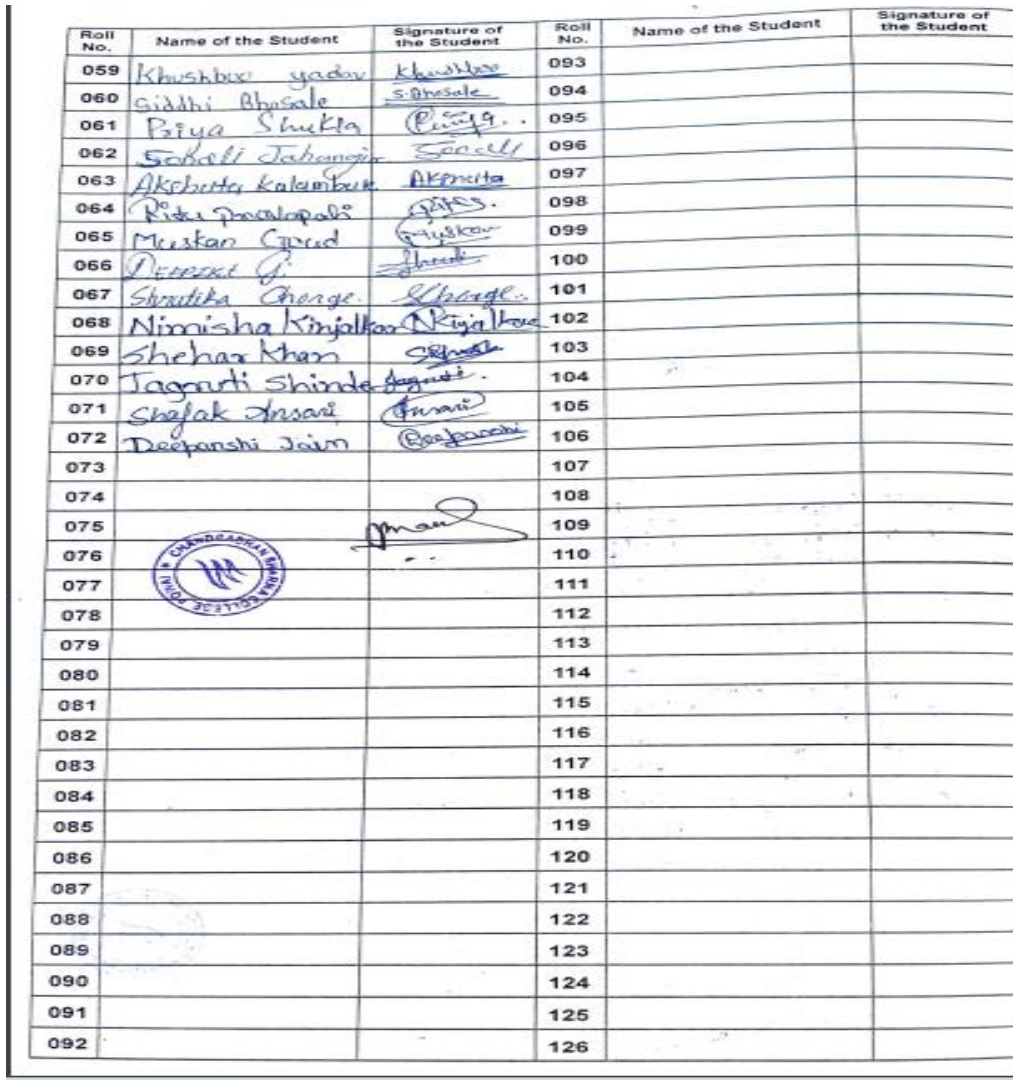 Roll No. Name of the Student Signature of the Student Roll No. Name of the Student Signature of the Student
059 Khushboo yadav Khushboo 093
060 Siddhi Bhosale S.Bhosale 094
061 Priya Shukla Priya 095
062 Sonali Jahangir Sonali 096
063 Akshuta Akshuta 097
064 Ritu 098
065 Muskan Goud Muskan 099
066 DEEPIKA G. 100
067 Shrutika Ghorge. 101
068 Nimisha Kinjalkar NKinjalkar 102
069 Shehar Khan 103
070 Jagruti Shinde Jagruti. 104
071 Shafak Ansari Ansari 105
072 Deepanshi Jain Deepanshi 106
073 107
074 108
075 109
076 110
077 111
078 112
079 113
080 114
081 115
082 116
083 117
084 118
085 119
086 120
087 121
088 122
089 123
090 124
091 125
092 126
CHANDRABHAN SHARMA COLLEGE POWAI